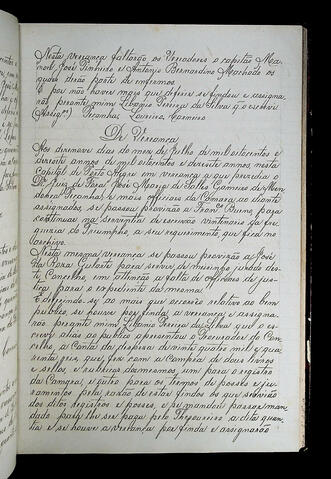 Nesta vereança faltarão os Vereadores o capitão Ma-
noel José Pinheiro e Antonio Bernardino Machado os
quaes derão parte de enfermos.
E por não haver mais que deferir se findou e assigna-
rão perante mim Libanio Pereira da Silva que o escrevi
(Assig.os) Peçanha, Loureiro, Carneiro
De Vereança
Aos desenove dias do mez de Julho de mil oitocentos e
deseste annos de mil oitocentos e deseste annos, nesta
Capital de Porto Alegre em vereança a que presidio o
Dr. Juiz de Fora José Maria de Salles Gameiro de Men-
donça Peçanha, e mais officiaes da Camara ao diante
assignados, se passou provisão a Fran.co Bueno para
continuar na serventia de escrivão vintenario da fre-
guezia do Triumpho, a seu requerimento, que fica no
archivo.
Nesta mesma vereança se passou provisão a José
da Rosa para servir de meirinho jurado des-
te Concelho em attenção a falta de officiaes de jus-
tiça para o expediente da mesma.
E deferindo-se ao mais que occorreo relativo ao bem
publico, se houve por finda a vereança e assigna-
rão perante mim Libanio Pereira da Silva que o es-
crevi. Dias ao publico apresentou o Procurador do Con-
celho, a Conta da despeza de vinte quatro mil e qua-
renta reis, que fez com a Compra de dous livros
e sellos, e rubricas dos mesmos, um para o registro
da Camara, e outro para os termos de posses e ju-
ramentos pela razão de estar findos os que servião
dos ditos registros e posses, e se mandou passar man-
dado para lhe ser paga pelo Thezoureiro a dita quan-
tia e se houve a vereança por finda e assignarão